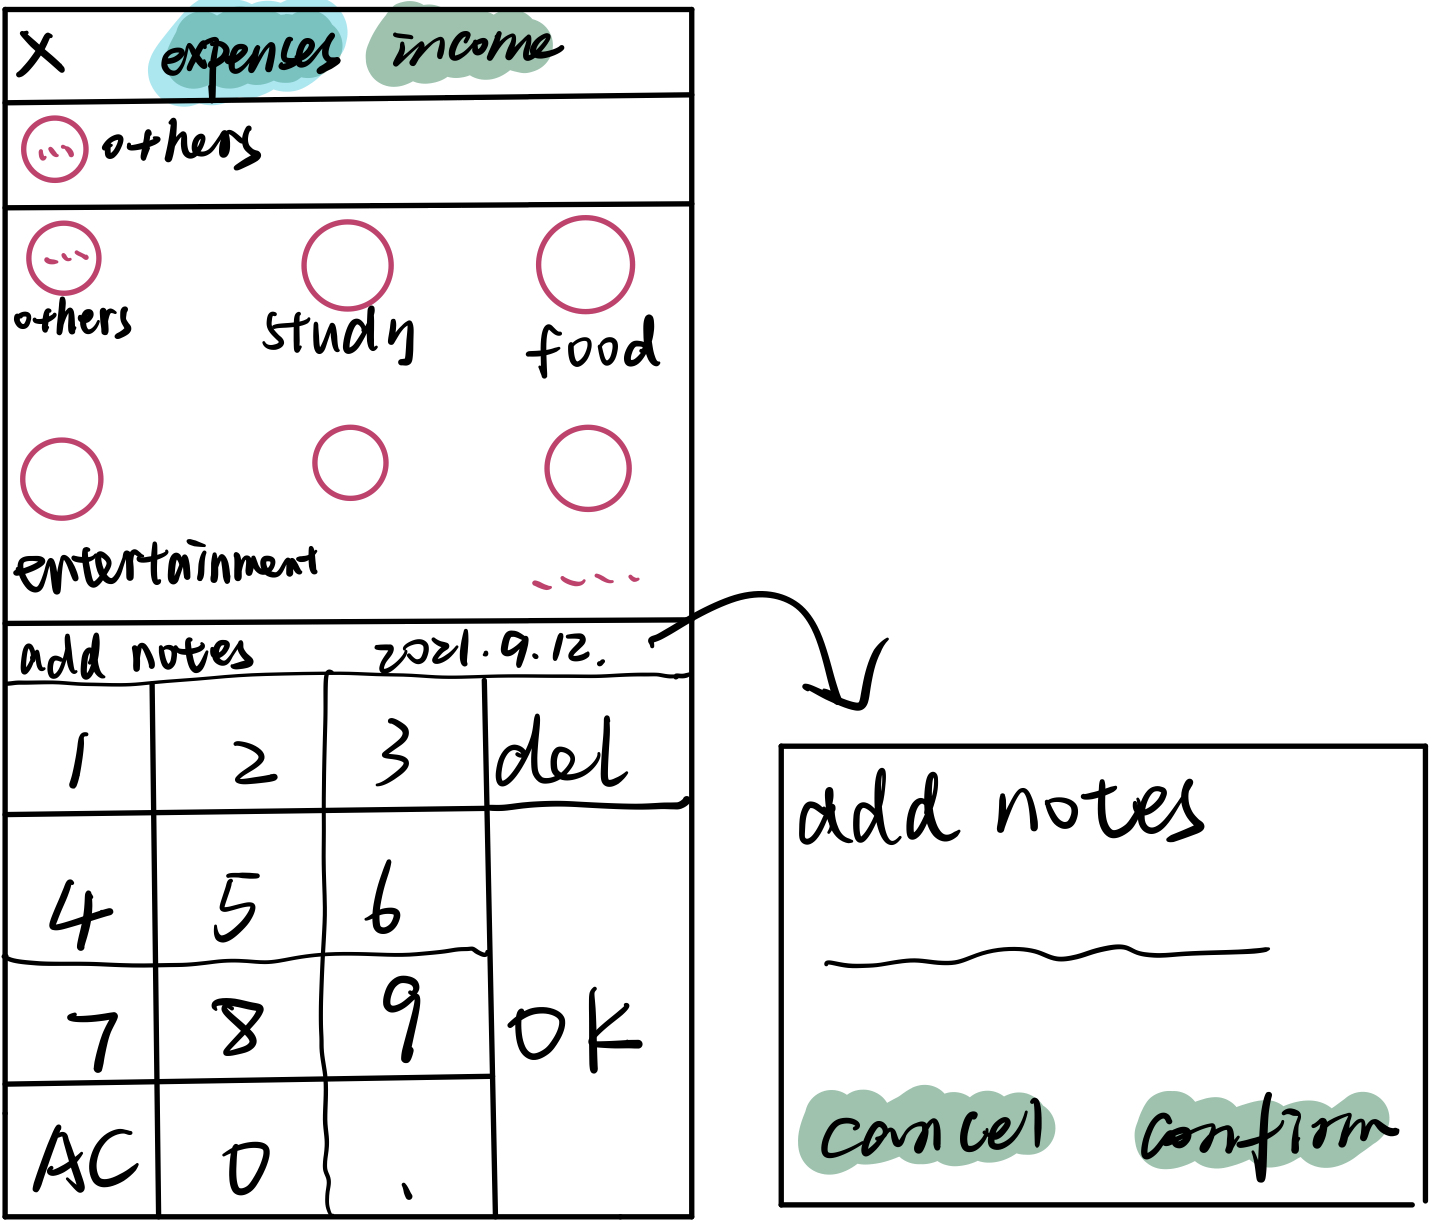 X expenses income
... others
...
others study food
entertainment
add notes 2021.9.12.
1 2 3 del
4 5 6
7 8 9 OK
AC 0 .
add notes
cancel confirm